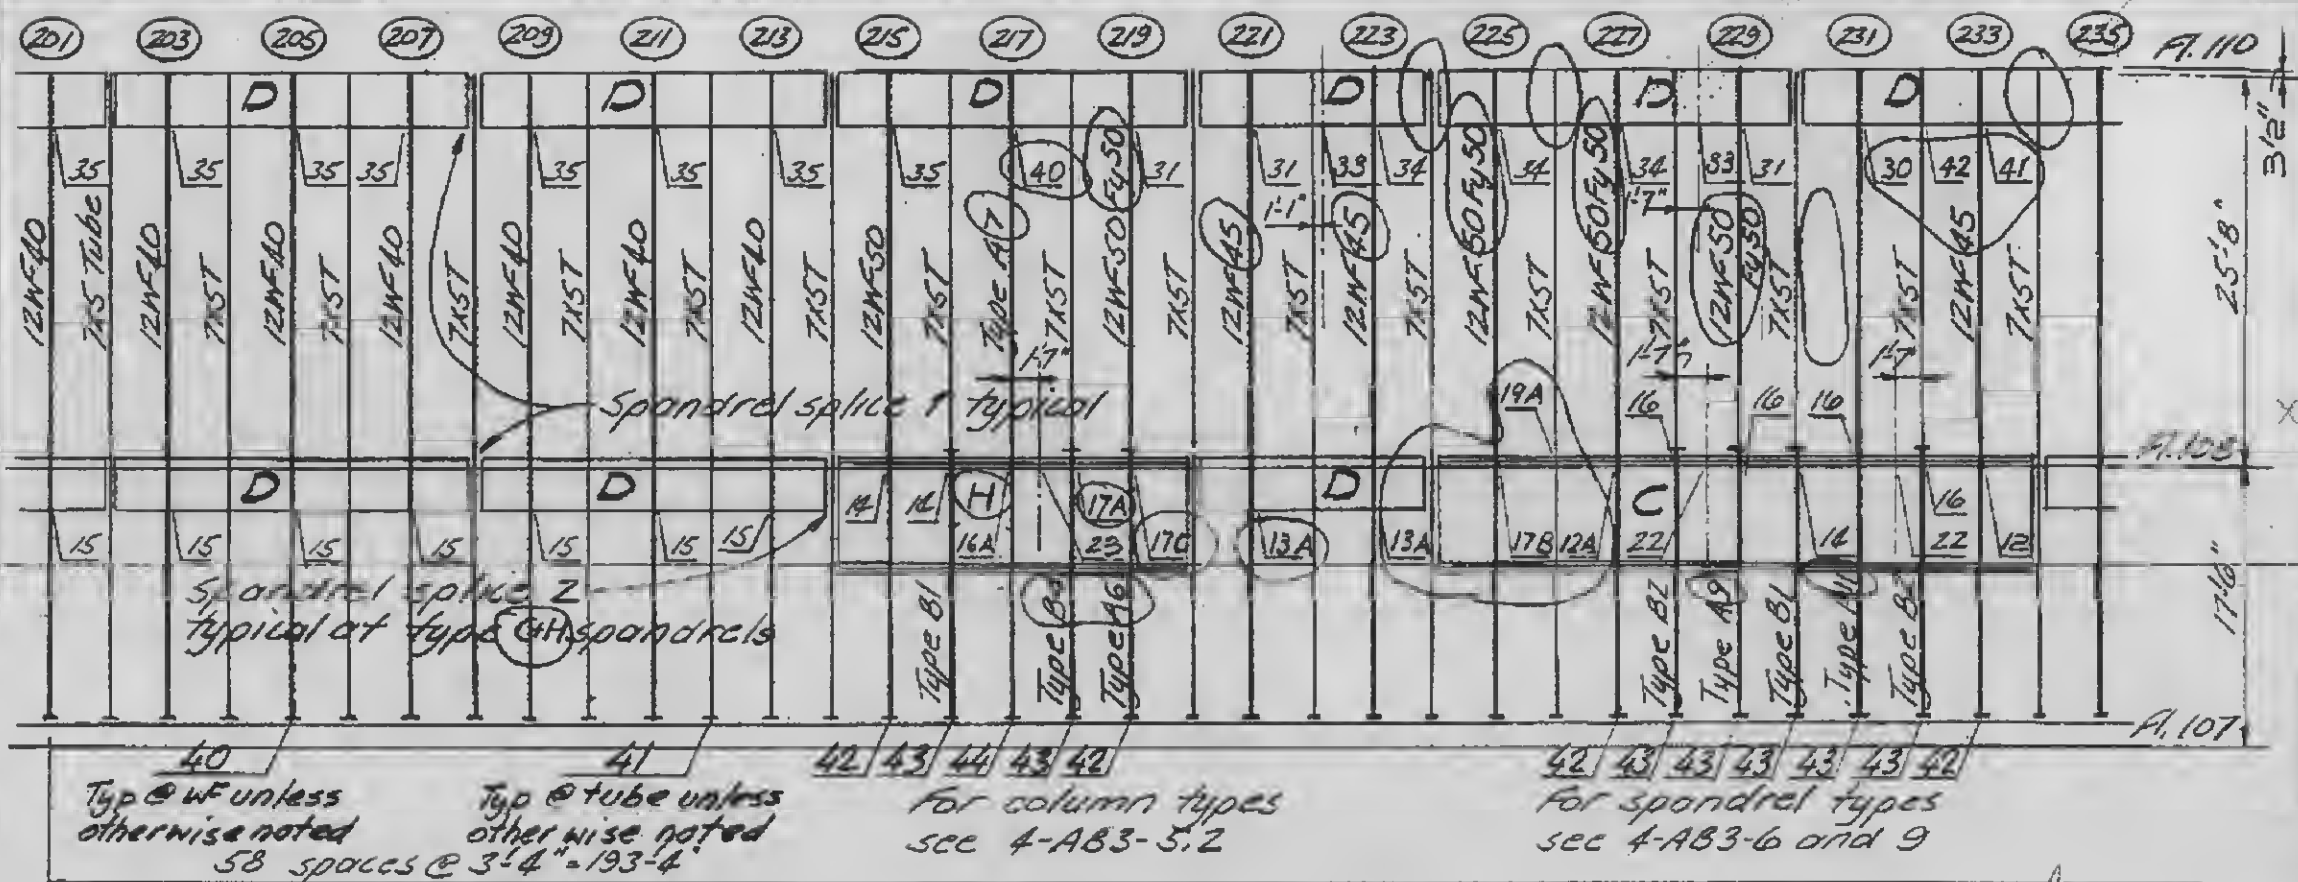 201 203 205 207 209 211 213 215 217 219 221 223 225 227 229 231 233 235 Fl. 110
D D D D D D D
3'2"
35 35 35 35 35 35 35 35 40 31 31 33 34 34 34 33 31 30 42 41
1'-1" 1'-7"
12WF40 7x5 Tube 12WF40 7x5T 12WF40 7x5T 12WF40 7x5T 12WF40 7x5T 12WF40 7x5T 12WF40 7x5T 12WF50 7x5T Type A7 7x5T 12WF50 Fy50 7x5T 12WF45 7x5T 12WF45 7x5T 12WF50 Fy50 7x5T 12WF50 Fy50 7x5T 12WF50 Fy50 7x5T 7x5T 12WF45 7x5T
25'-8"
1'-7" 1'-7" 1'-7"
Spandrel splice 1 typical
19A 16 16 16
Fl. 108
D D 14 14 H 17A D C 16
15 15 15 15 15 15 15 16A 23 17C 13A 13A 17B 12A 22 16 22 12
Spandrel splice 2
typical at type GH spandrels
Type B1 Type A6 Type B2 Type A9 Type B1 Type A11
17'-6"
Fl. 107
40 41 42 43 44 43 42 42 43 43 43 43 43 42
Typ @ WF unless
otherwise noted
Typ @ tube unless
otherwise noted
For column types
see 4-AB3-5.2
For spandrel types
see 4-AB3-6 and 9
58 spaces @ 3'-4" = 193-4"